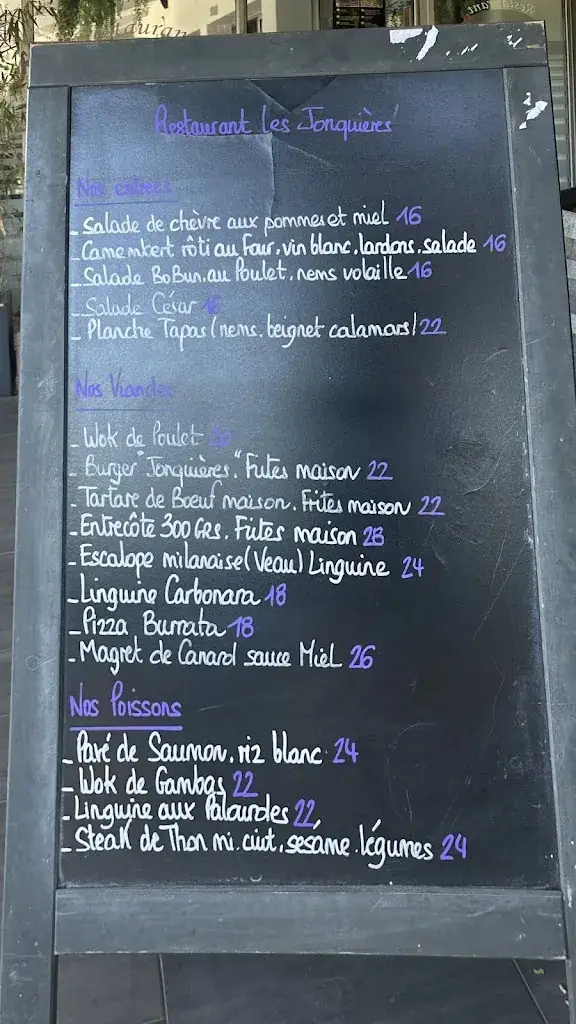 Restaurant Les Jonquières
Nos entrées
- Salade de chèvre aux pommes et miel 16
- Camembert rôti au Four, vin blanc, lardons, salade 16
- Salade BoBun au Poulet, nems volaille 16
- Salade César 16
- Planche Tapas (nems, beignet calamars) 22
Nos Viandes
- Wok de Poulet 20
- Burger "Jonquières". Frites maison 22
- Tartare de Boeuf maison. Frites maison 22
- Entrecôte 300 GRS. Frites maison 28
- Escalope milanaise (Veau) Linguine 24
- Linguine Carbonara 18
- Pizza Burrata 18
- Magret de Canard sauce Miel 26
Nos Poissons
- Pavé de Saumon, riz blanc 24
- Wok de Gambas 22
- Linguine aux Palourdes 22
- Steak de Thon mi.cuit, sésame, légumes 24